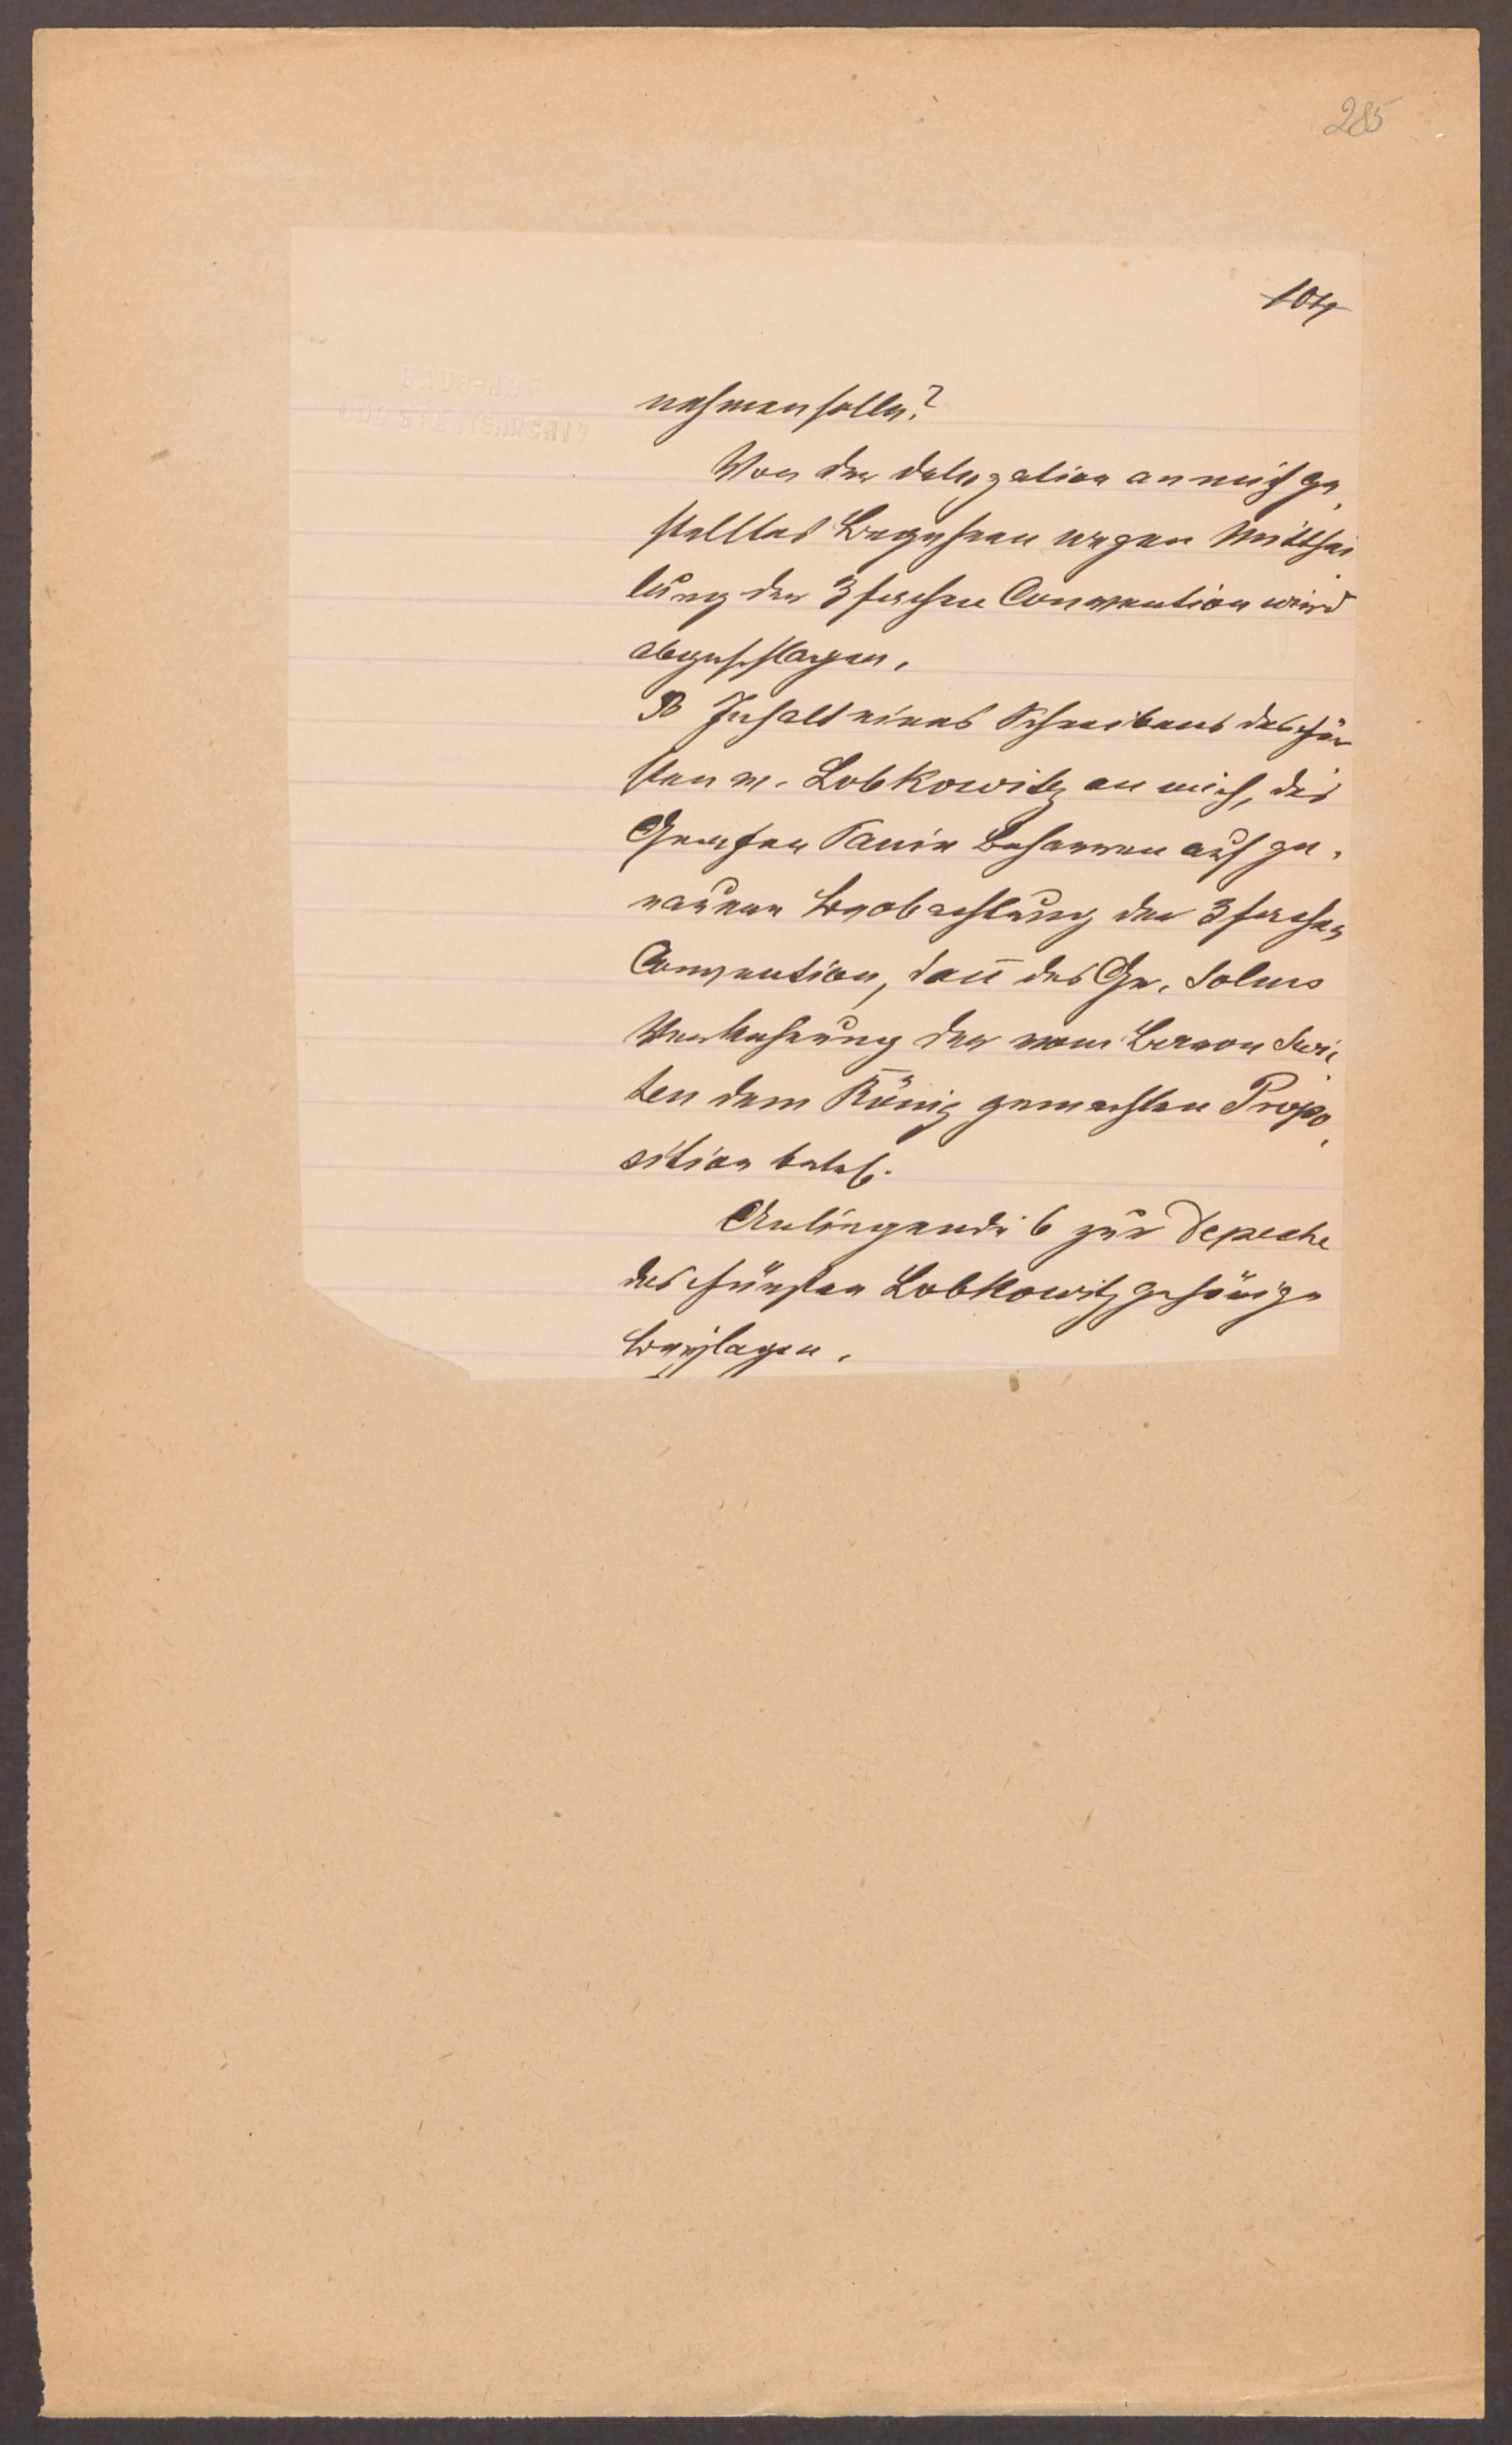 285
104
nehmen solle?
Von der Delegation an mich ge,
stelltes Begehren wegen Mitthei
lung der 3fachen Convention wird
abgeschlagen.
B Inhalt eines Schreibens des Für
sten v. Lobkowitz an mich, des
Grafen Panin Beharren auf ge,
nauen Beobachtung der 3fachen
Convention, dañ des Gr. Solms
der vom Baron Swi,
ten dem König gemachten Propo,
sition betref.
Anliegende 6 zur Depeche
des Fürsten Lobkowitz gehörige
Beyjlagen.